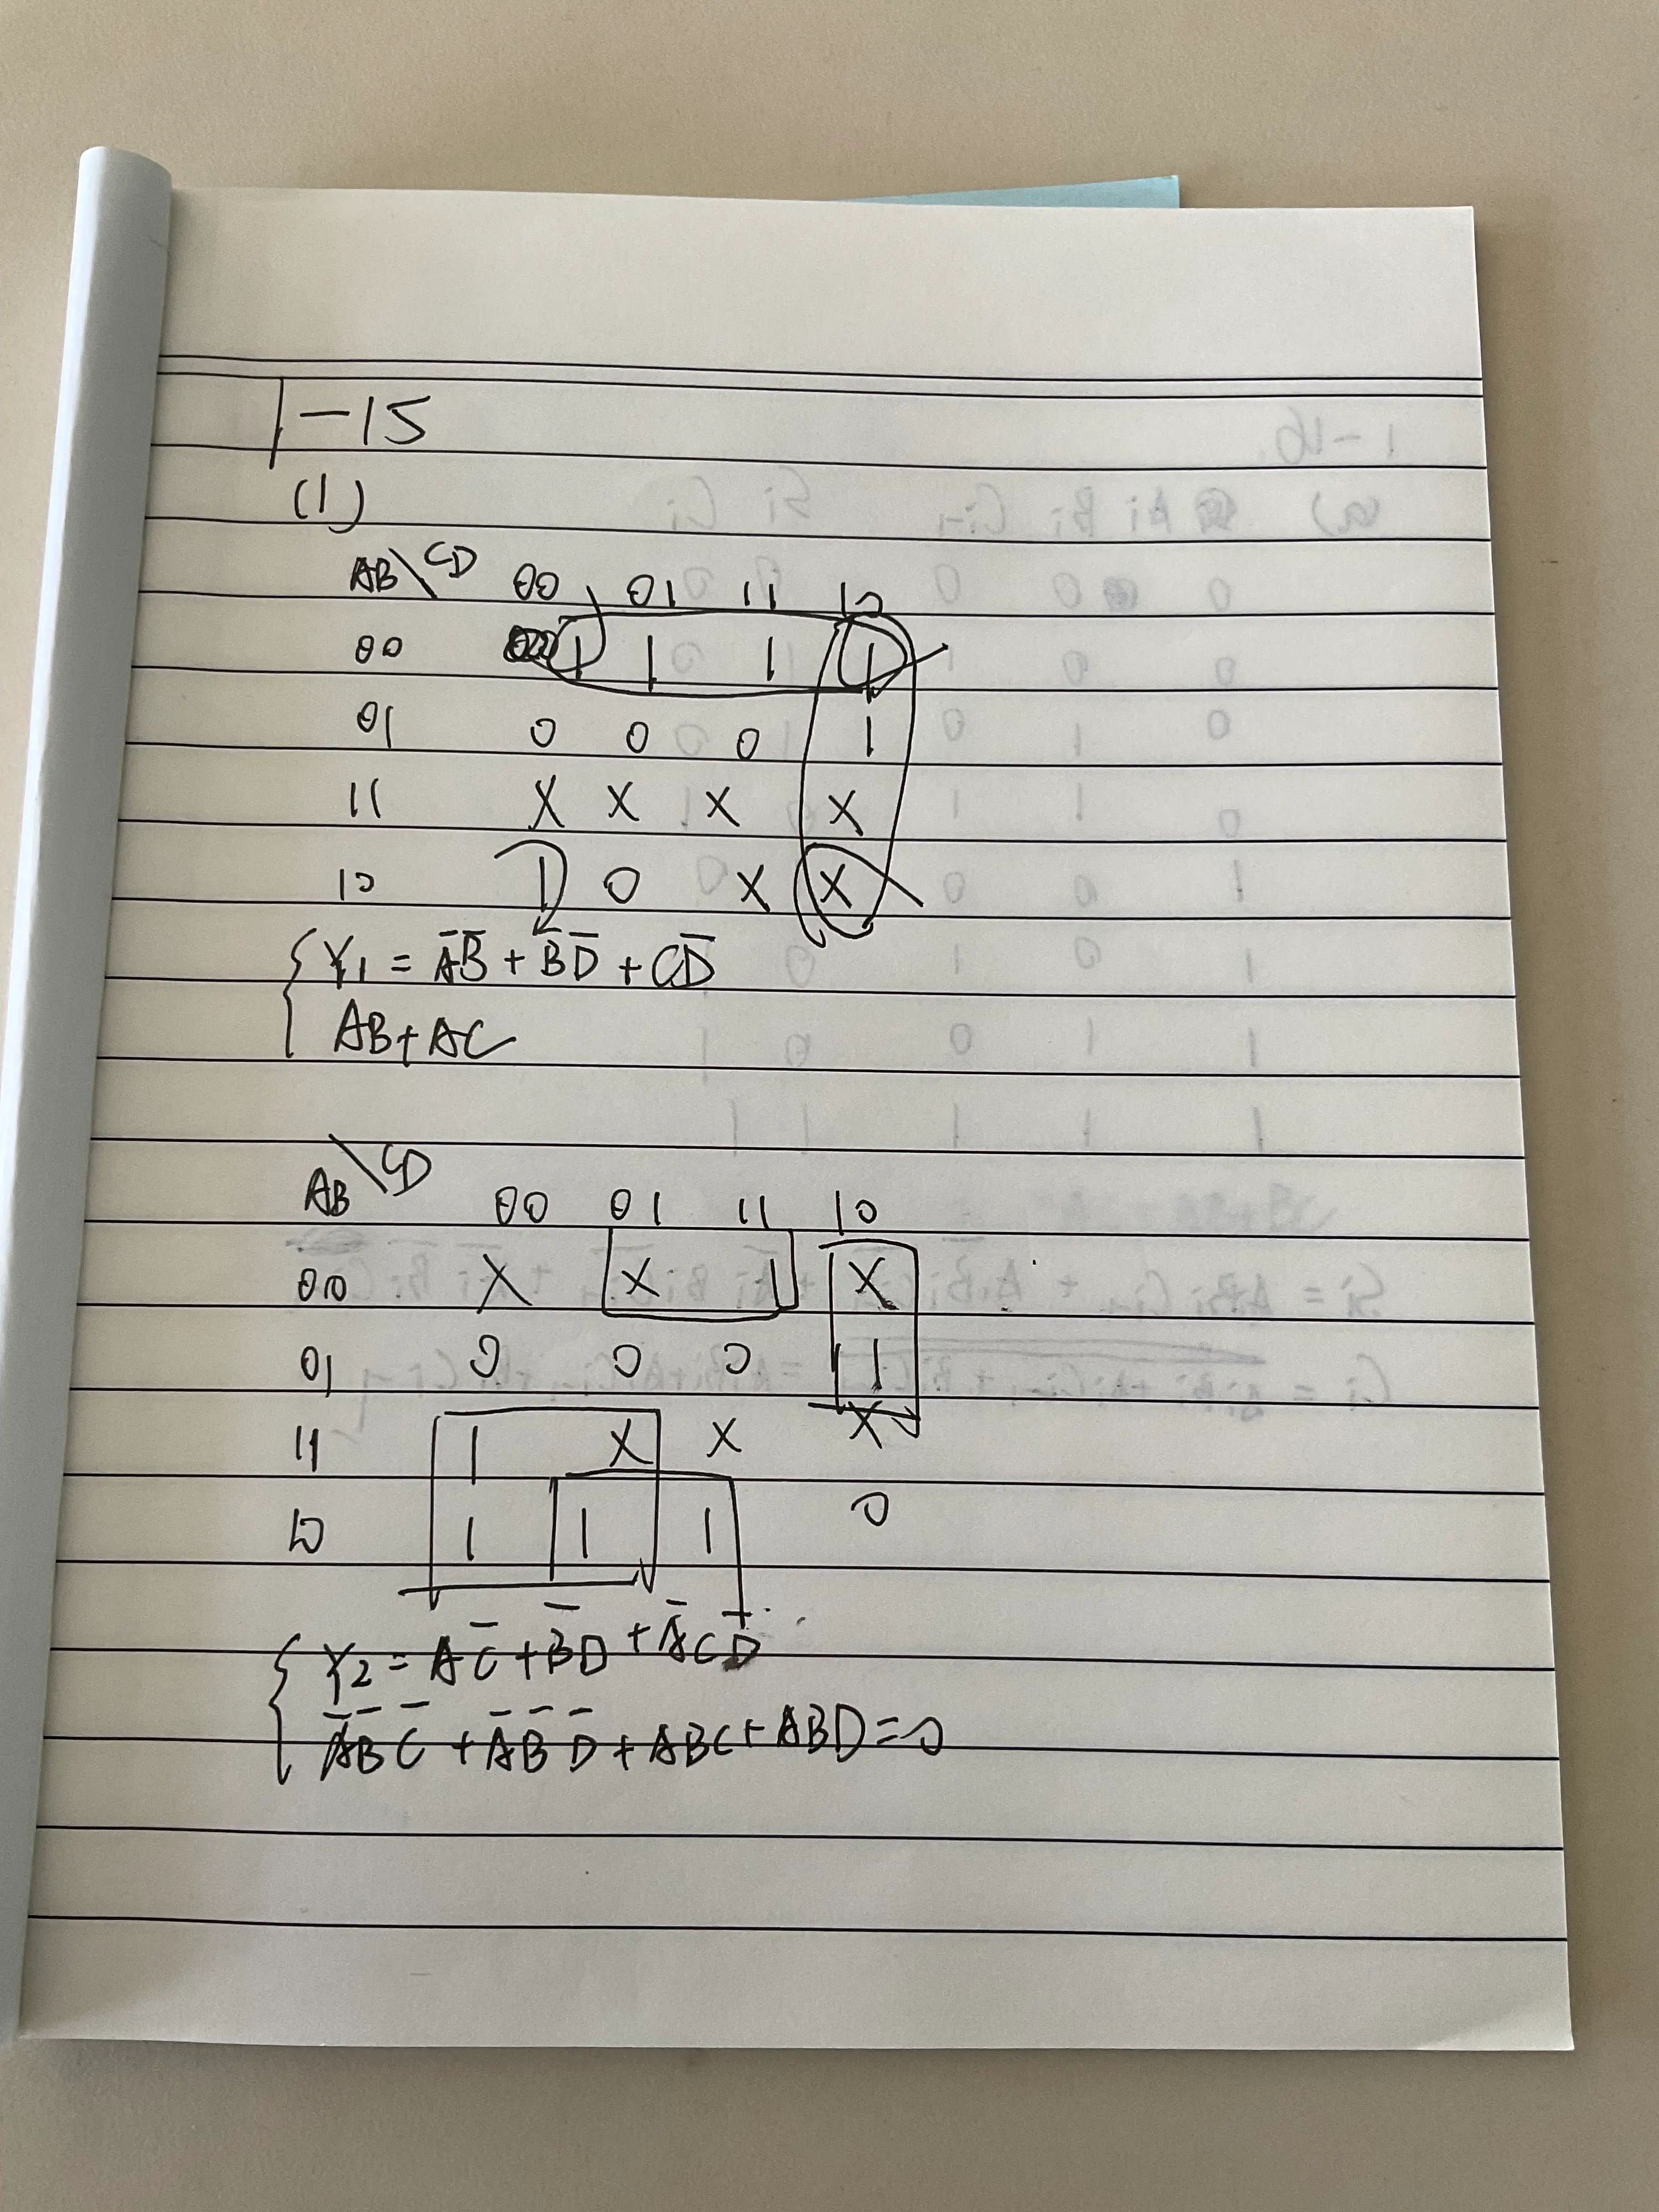 1-15
(1)
AB\CD 00 01 11 10
00 1 1 1 1
01 0 0 0 1
11 X X X X
10 1 0 X X
Y₁ = A̅B̅ + B̅D̅ + CD̅
AB+AC
AB\CD 00 01 11 10
00 X X 1 X
01 0 0 0 1
11 1 X X X
10 1 1 1 0
Y₂ = AC̅ + B̅D + A̅CD̅
A̅B̅C̅ + A̅B̅D̅ + ABC + ABD = 0